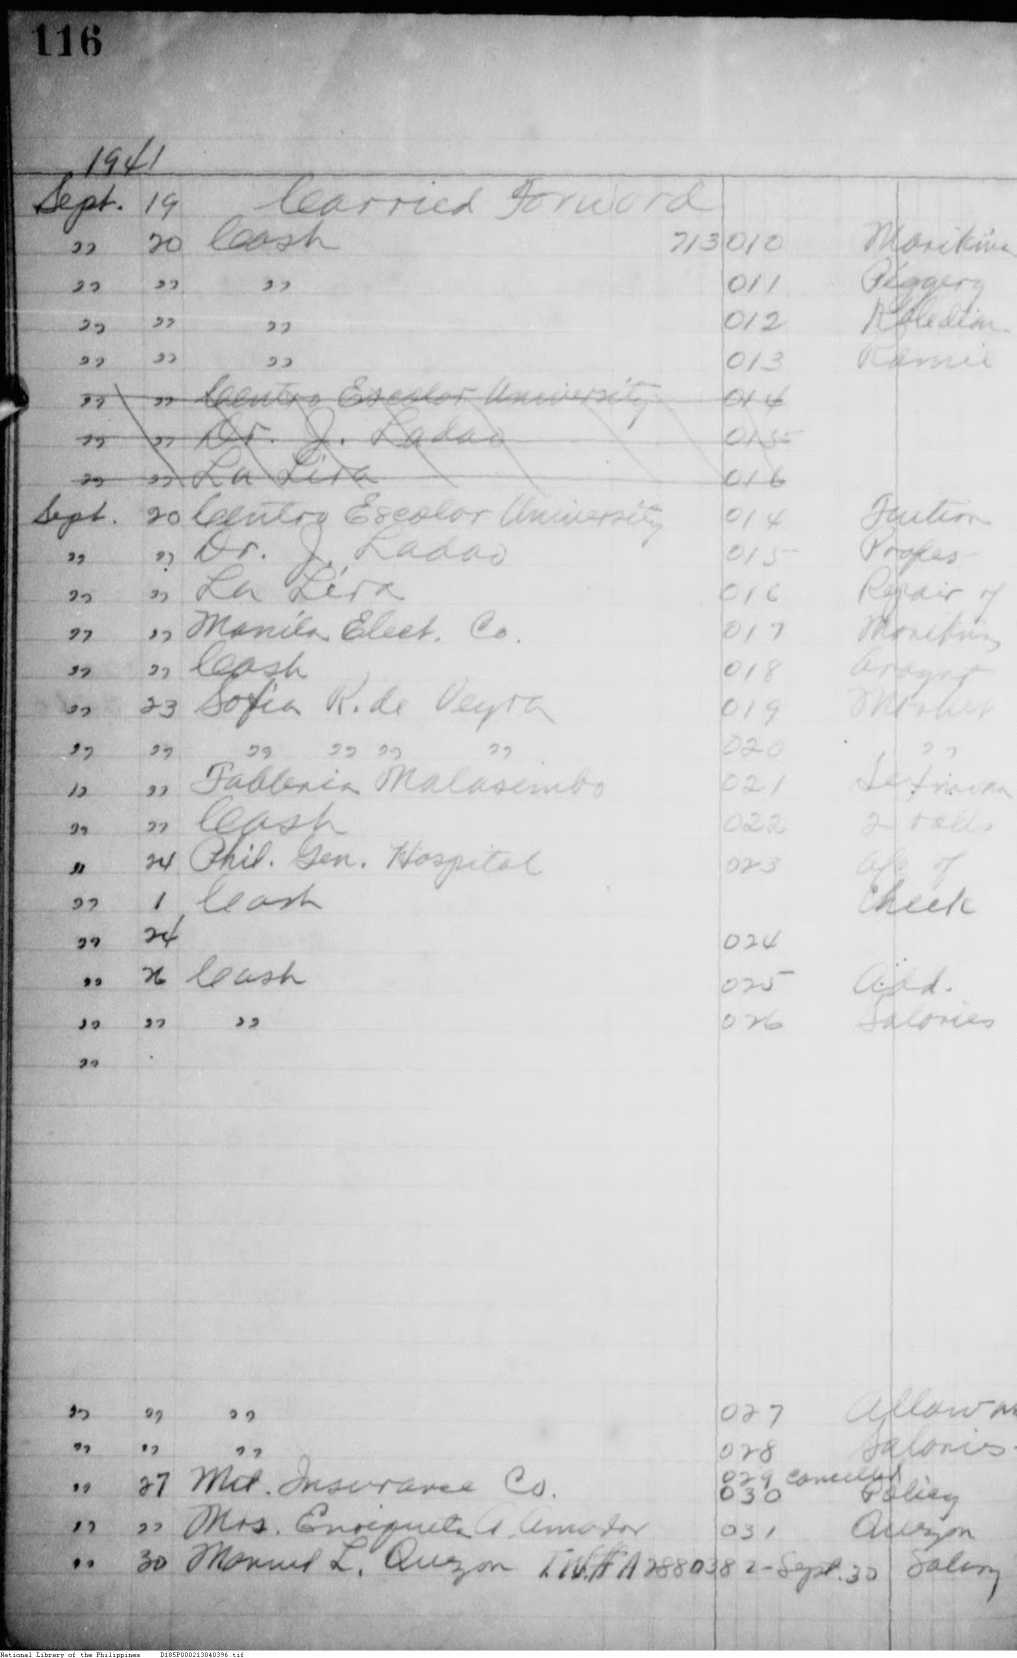 116
1941
Sept. 19 Carried Forward
" 20 Cash 713010 Marikina
" " " 011 Piggery
" " " 012
" " " 013 Ramie
" " Centro Escolar University 014
" " Dr. J. Ladao 015
" " La Lira 016
Sept. 20 Centro Escolar University 014 Tuition
" " Dr. J. Ladao 015 Profes
" " La Lira 016 Repair of
" " Manila Elect. Co. 017 Marikina
" " Cash 018 Arayat
" 23 Sofia K. de Veyra 019
" " " " " " 020 "
" " Tableria Malasimbo 021
" " Cash 022 2
" 24 Phil. Gen. Hospital 023 a/c of
" 1 Cash Check
" 24 024
" 26 Cash 025 Add.
" " " 026 Salaries
"
" " " 027 Allowan
" " " 028 Salaries
029 Cancelled
" 27 Met. Insurance Co. 030 Policy
" " Mrs. Enriqueta A. Amador 031 Quezon
" 30 Manuel L. Quezon T.W.# A2880382-Sept. 30 Salary
National Library of the Philippines D185P000213040396.tif